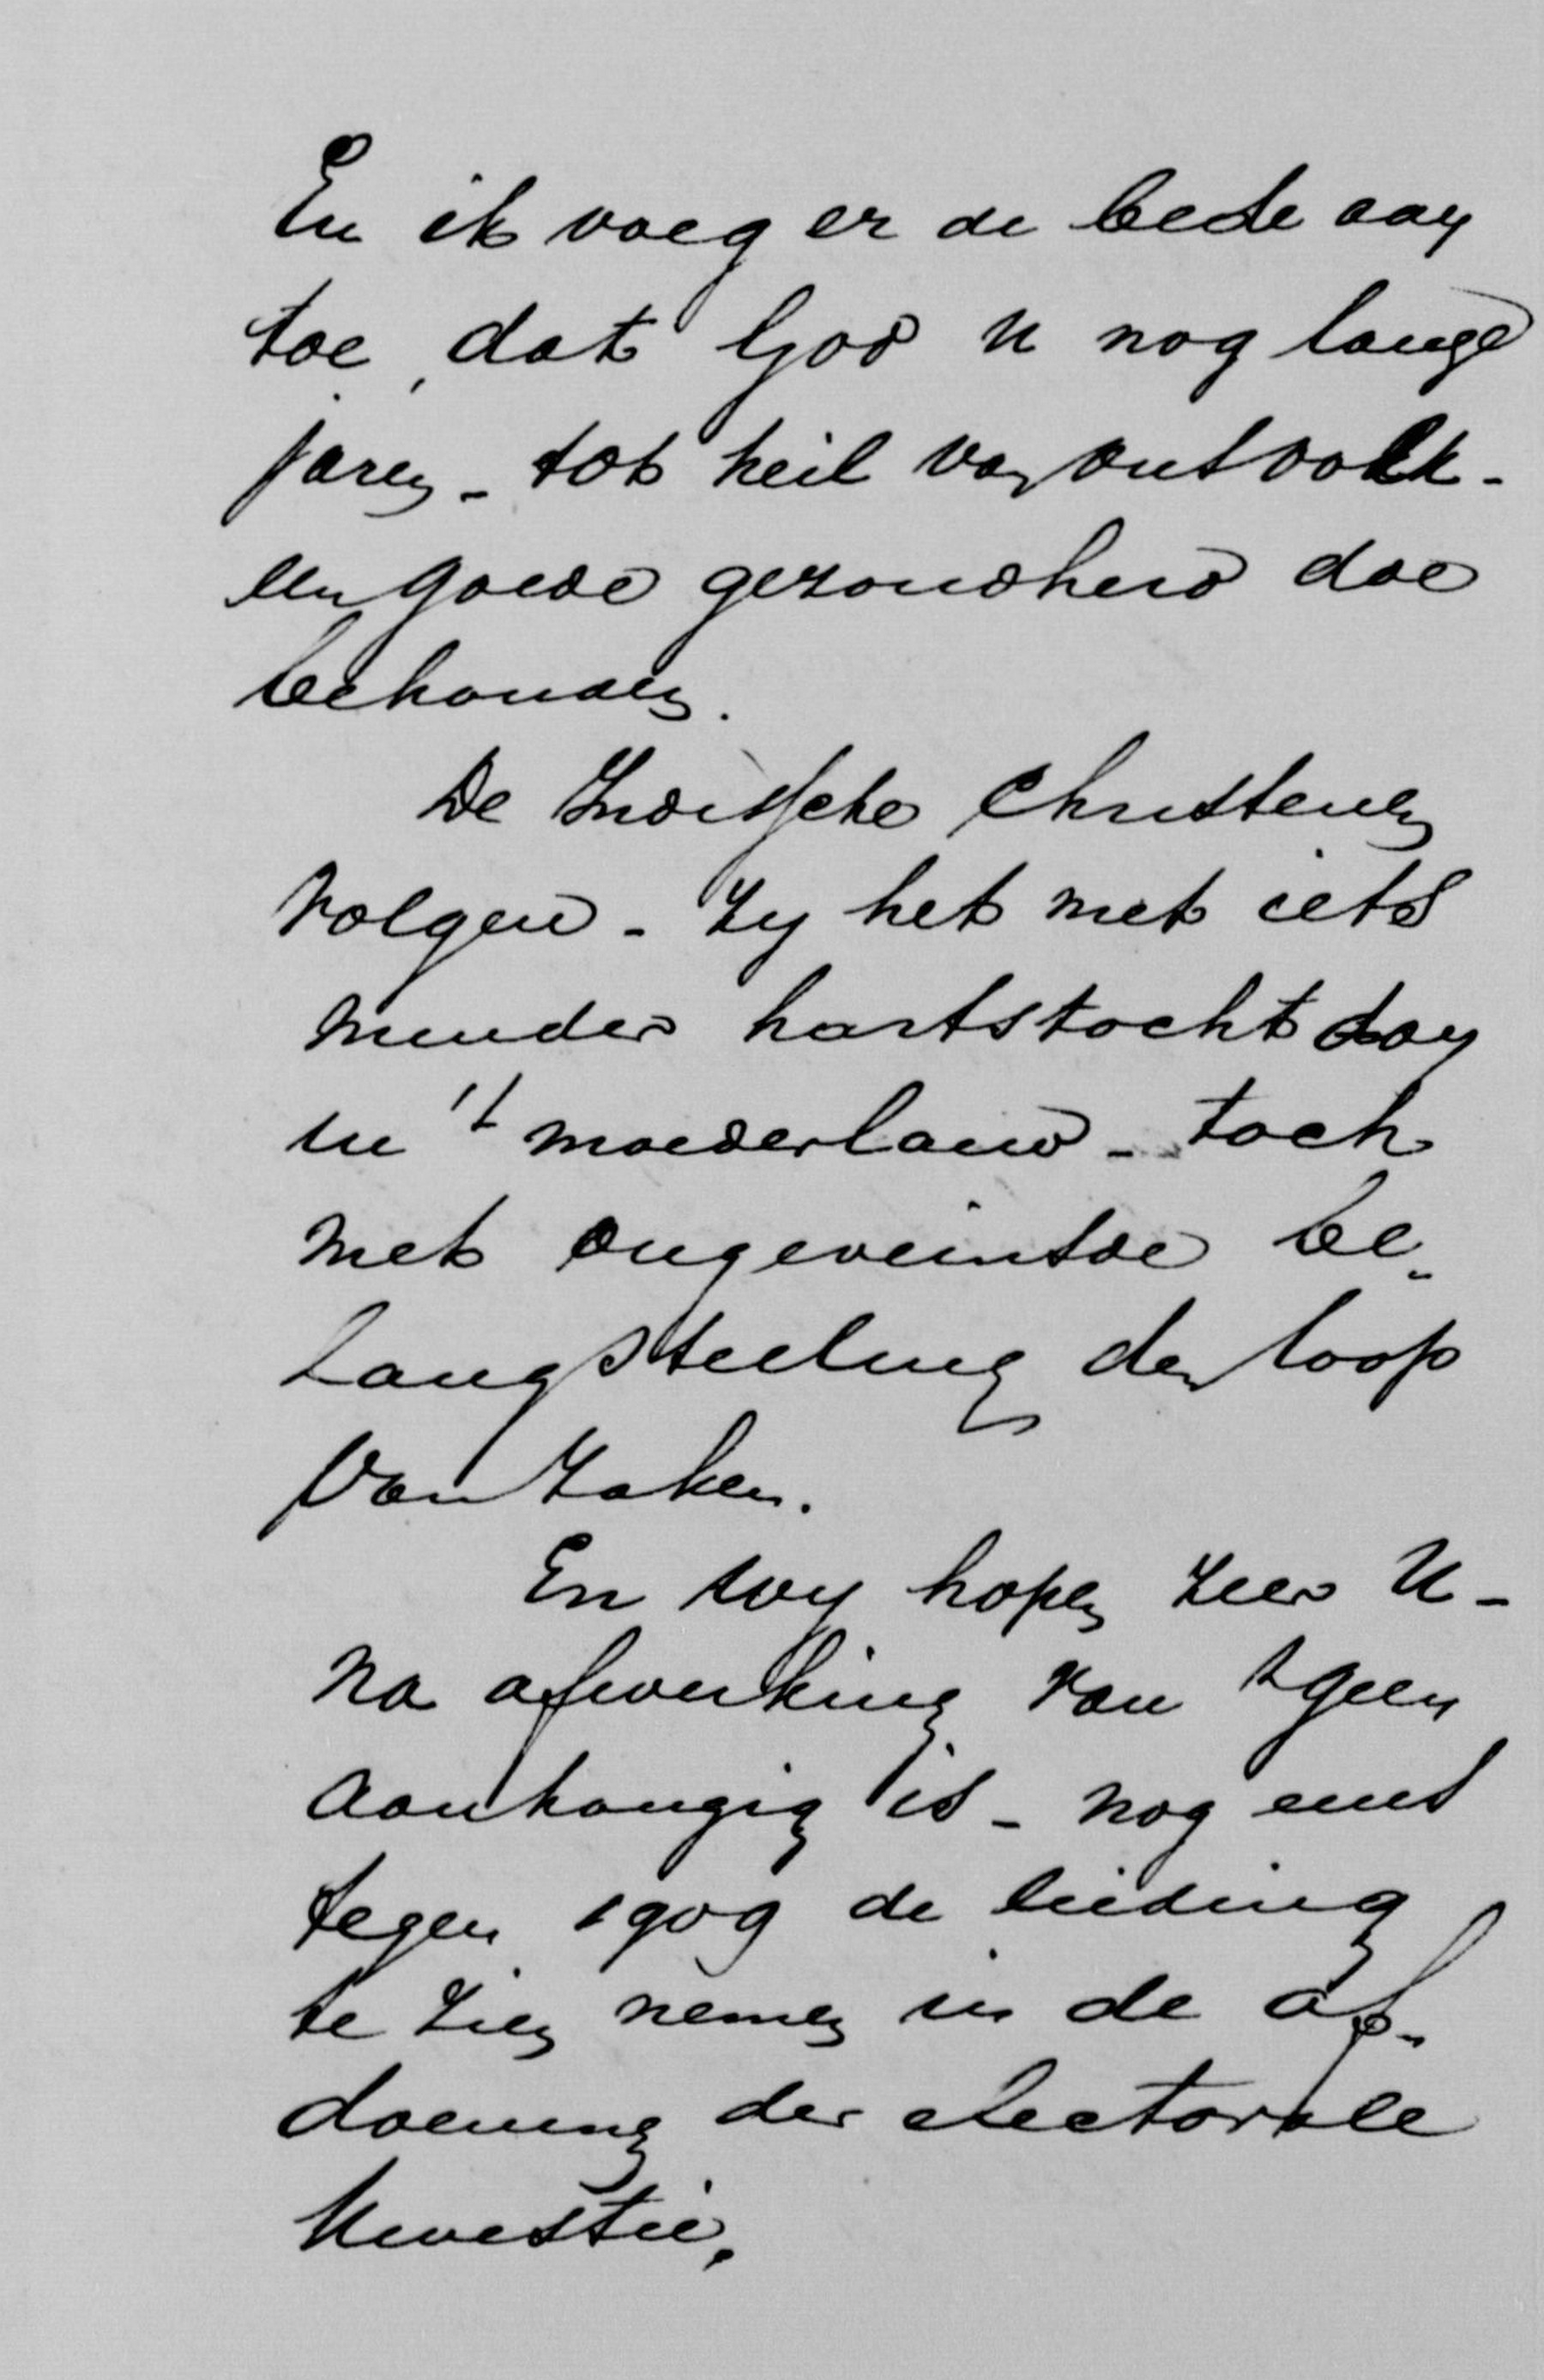 En ik voeg er de bede aan
toe, dat God U nog lange
jaren - tot heil van ons volk -
een goede gezondheid doe
behouden.
De Indische Christenen
volgen - zij het met iets
minder hartstocht dan
in 't moederland - toch
met ongeveinsde be-
langstelling den loop
van zaken.
En wij hopen zeer U -
na afwerking van 'tgeen
aanhangig is - nog eens
tegen 1909 de leiding
te zien nemen in de af-
doening der electorale
kwestie.